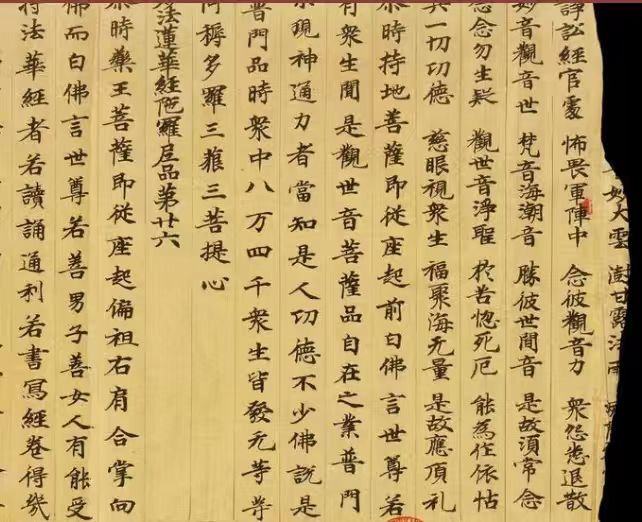 妙大雲 澍甘露法雨
諍訟經官處 怖畏軍陣中 念彼觀音力 衆怨悉退散
妙音觀音世 梵音海潮音 勝彼世間音 是故湏常念
念念勿生疑 觀世音淨聖 於苦惱死厄 能為作依怙
具一切功德 慈眼視衆生 福聚海无量 是故應頂礼
尒時持地菩薩即從座起前白佛言世尊若
有衆生聞是觀世音菩薩品自在之業普門
示現神通力者當知是人功德不少佛說是
普門品時衆中八万四千衆生皆發无等等
阿耨多羅三藐三菩提心
法蓮華經陀羅尼品第廿六
尒時藥王菩薩即從座起偏袒右肩合掌向
佛而白佛言世尊若善男子善女人有能受
持法華經者若讀誦通利若書寫經卷得幾